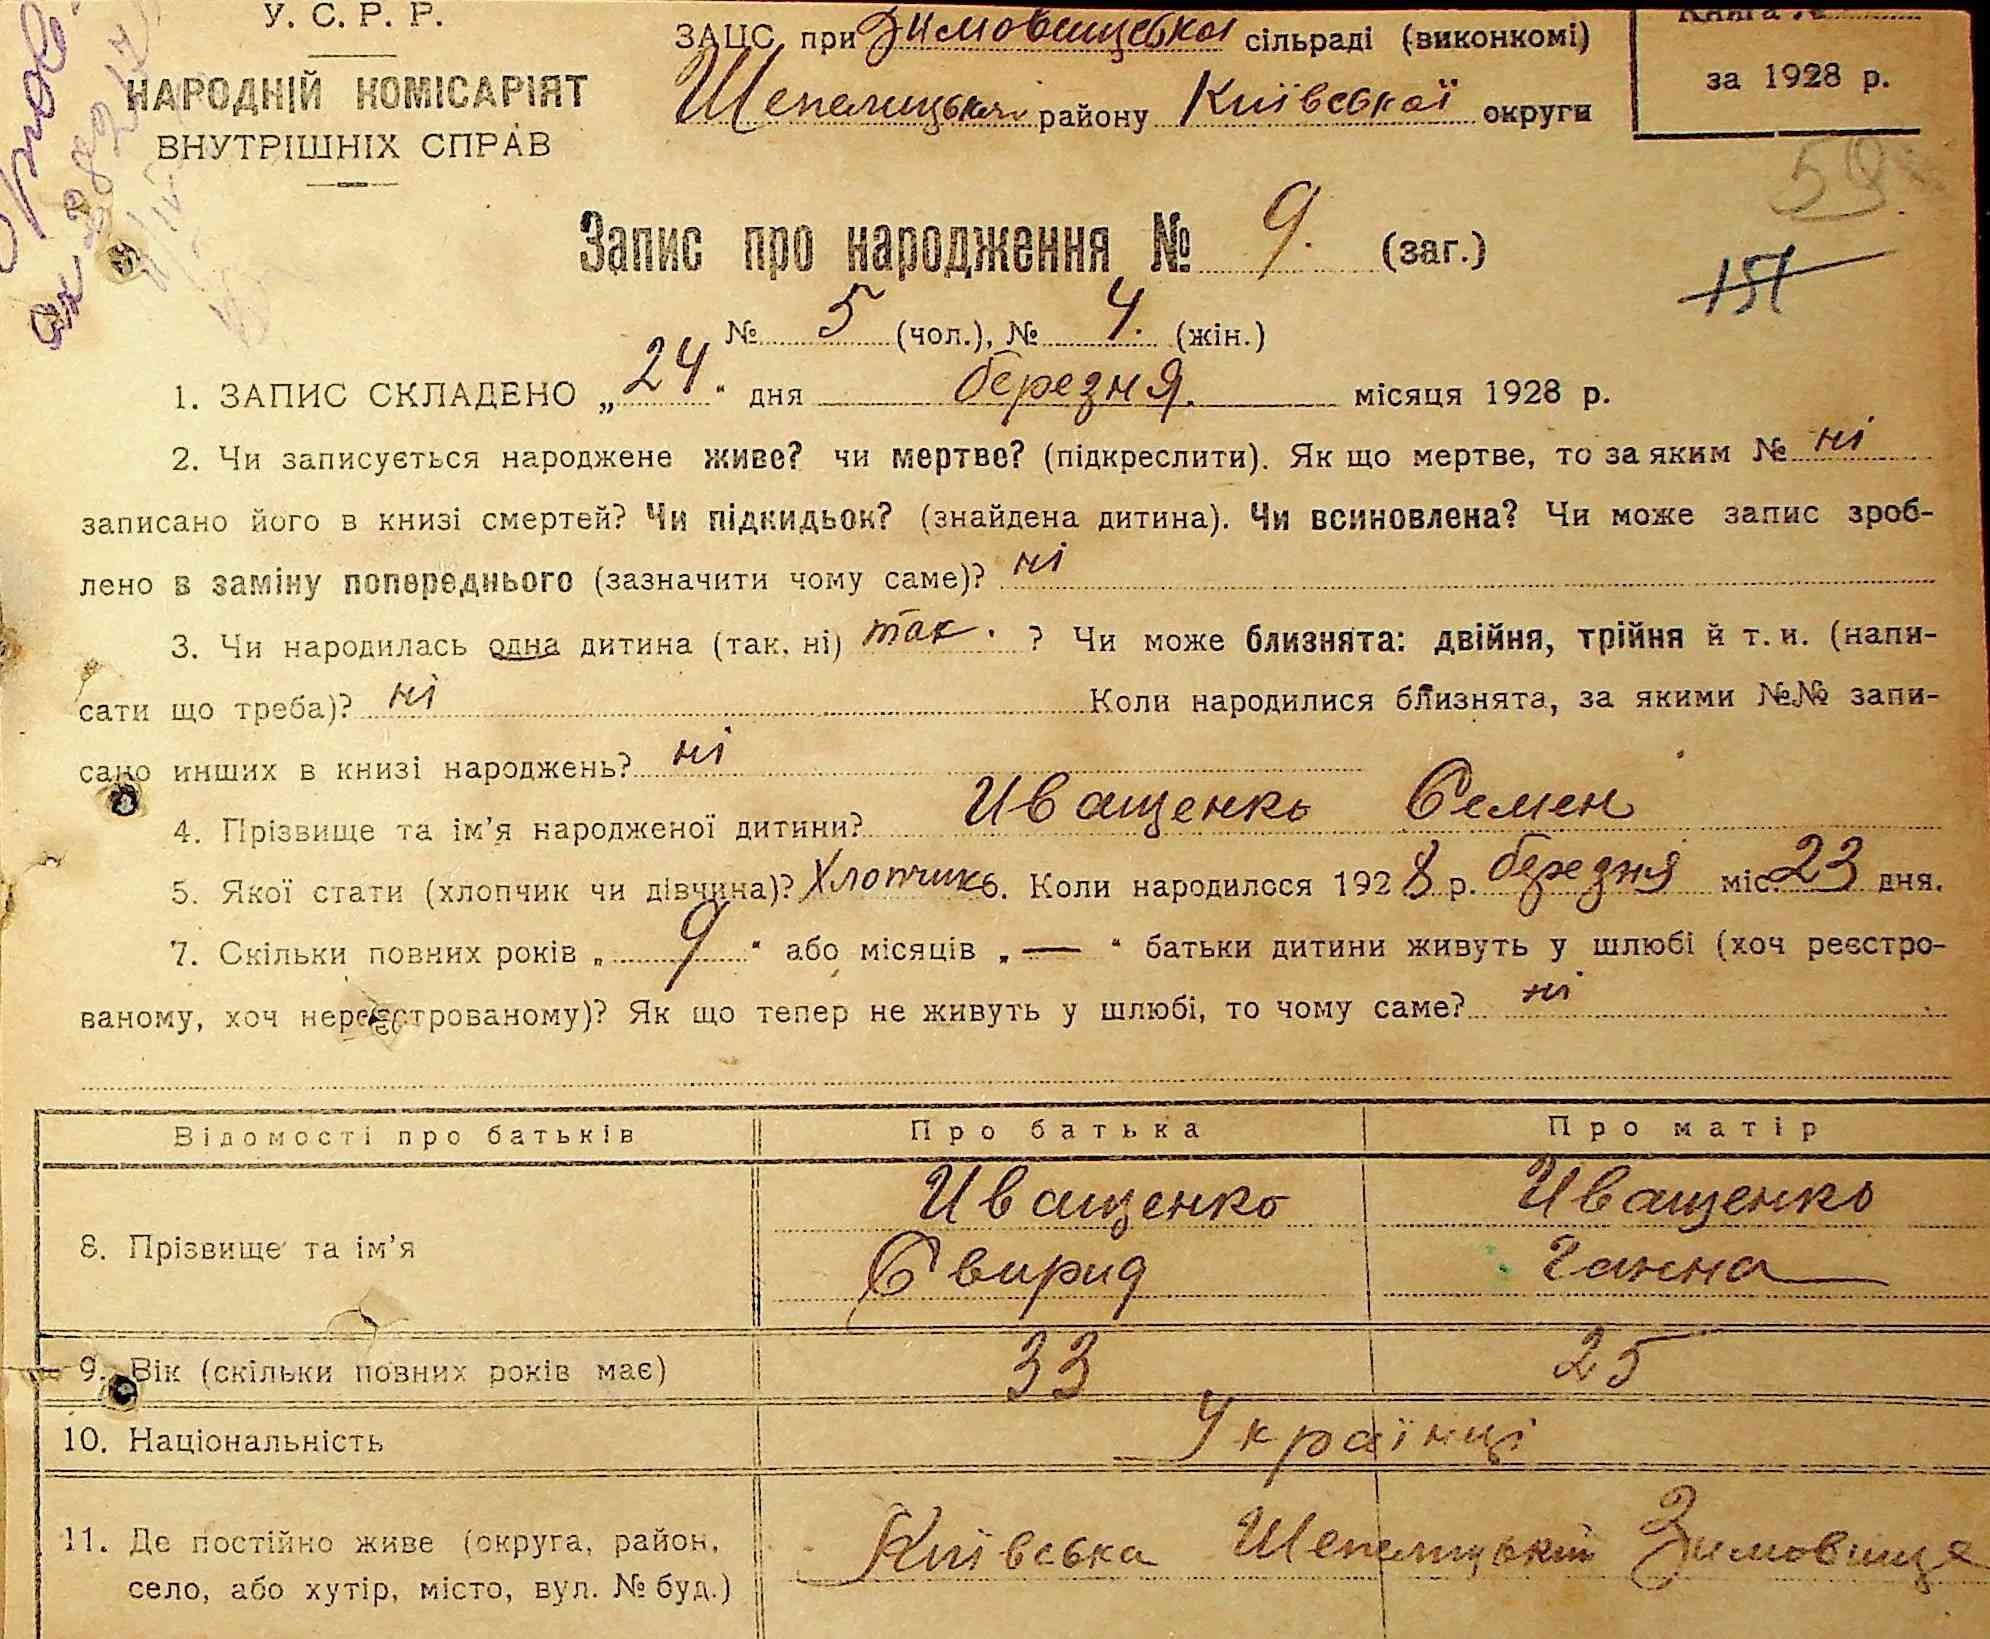 У. С. Р. Р.
НАРОДНІЙ КОМІСАРІЯТ
ВНУТРІШНІХ СПРАВ
ЗАЦС при Зимовищеській сільраді (виконкомі)
Шепелицького району Київської округи
Книга №
за 1928 р.
59
151
Запис про народження № 9. (заг.)
№ 5 (чол.), № 4. (жін.)
1. ЗАПИС СКЛАДЕНО „24“ дня березня. місяця 1928 р.
2. Чи записується народжене живе? чи мертве? (підкреслити). Як що мертве, то за яким № ні
записано його в книзі смертей? Чи підкидьок? (знайдена дитина). Чи всиновлена? Чи може запис зроб-
лено в заміну попереднього (зазначити чому саме)? ні
3. Чи народилась одна дитина (так, ні) так. ? Чи може близнята: двійня, трійня й т. и. (напи-
сати що треба)? ні Коли народилися близнята, за якими №№ запи-
сано инших в книзі народжень? ні
4. Прізвище та ім'я народженої дитини? Иващенко Семен
5. Якої стати (хлопчик чи дівчина)? Хлопчикъ. Коли народилося 1928 р. березня міс. 23 дня.
7. Скільки повних років „9“ або місяців „—“ батьки дитини живуть у шлюбі (хоч реєстро-
ваному, хоч нереєстрованому)? Як що тепер не живуть у шлюбі, то чому саме? ні
Відомості про батьків Про батька Про матір
8. Прізвище та ім'я Иващенко Свирид Иващенко Ганна
9. Вік (скільки повних років має) 33 25
10. Національність Українці
11. Де постійно живе (округа, район, Київська Шепелицький Зимовище
село, або хутір, місто, вул. № буд.)